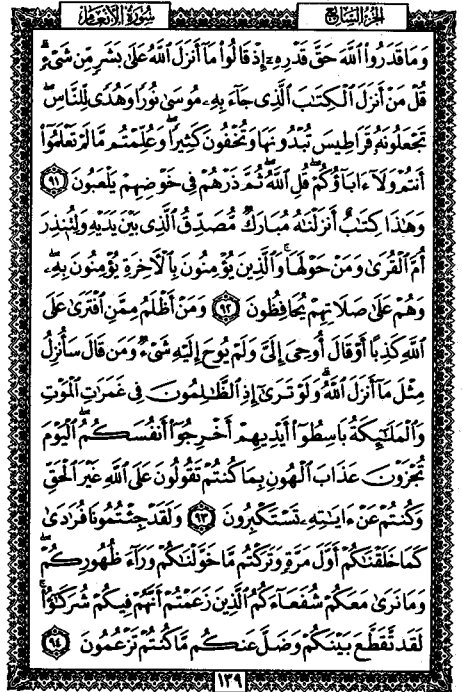 الجزء السابع
سورة الأنعام
وَمَا قَدَرُوا۟ ٱللَّهَ حَقَّ قَدْرِهِۦٓ إِذْ قَالُوا۟ مَآ أَنزَلَ ٱللَّهُ عَلَىٰ بَشَرٍ مِّن شَىْءٍ ۗ
قُلْ مَنْ أَنزَلَ ٱلْكِتَٰبَ ٱلَّذِى جَآءَ بِهِۦ مُوسَىٰ نُورًا وَهُدًى لِّلنَّاسِ ۖ
تَجْعَلُونَهُۥ قَرَاطِيسَ تُبْدُونَهَا وَتُخْفُونَ كَثِيرًا ۖ وَعُلِّمْتُم مَّا لَمْ تَعْلَمُوٓا۟
أَنتُمْ وَلَآ ءَابَآؤُكُمْ ۖ قُلِ ٱللَّهُ ۖ ثُمَّ ذَرْهُمْ فِى خَوْضِهِمْ يَلْعَبُونَ ٩١
وَهَٰذَا كِتَٰبٌ أَنزَلْنَٰهُ مُبَارَكٌ مُّصَدِّقُ ٱلَّذِى بَيْنَ يَدَيْهِ وَلِتُنذِرَ
أُمَّ ٱلْقُرَىٰ وَمَنْ حَوْلَهَا ۚ وَٱلَّذِينَ يُؤْمِنُونَ بِٱلْءَاخِرَةِ يُؤْمِنُونَ بِهِۦ ۖ
وَهُمْ عَلَىٰ صَلَاتِهِمْ يُحَافِظُونَ ٩٢ وَمَنْ أَظْلَمُ مِمَّنِ ٱفْتَرَىٰ عَلَى
ٱللَّهِ كَذِبًا أَوْ قَالَ أُوحِىَ إِلَىَّ وَلَمْ يُوحَ إِلَيْهِ شَىْءٌ وَمَن قَالَ سَأُنزِلُ
مِثْلَ مَآ أَنزَلَ ٱللَّهُ ۗ وَلَوْ تَرَىٰٓ إِذِ ٱلظَّٰلِمُونَ فِى غَمَرَٰتِ ٱلْمَوْتِ
وَٱلْمَلَٰٓئِكَةُ بَاسِطُوٓا۟ أَيْدِيهِمْ أَخْرِجُوٓا۟ أَنفُسَكُمُ ۖ ٱلْيَوْمَ
تُجْزَوْنَ عَذَابَ ٱلْهُونِ بِمَا كُنتُمْ تَقُولُونَ عَلَى ٱللَّهِ غَيْرَ ٱلْحَقِّ
وَكُنتُمْ عَنْ ءَايَٰتِهِۦ تَسْتَكْبِرُونَ ٩٣ وَلَقَدْ جِئْتُمُونَا فُرَٰدَىٰ
كَمَا خَلَقْنَٰكُمْ أَوَّلَ مَرَّةٍ وَتَرَكْتُم مَّا خَوَّلْنَٰكُمْ وَرَآءَ ظُهُورِكُمْ ۖ
وَمَا نَرَىٰ مَعَكُمْ شُفَعَآءَكُمُ ٱلَّذِينَ زَعَمْتُمْ أَنَّهُمْ فِيكُمْ شُرَكَٰٓؤُا۟ ۚ
لَقَد تَّقَطَّعَ بَيْنَكُمْ وَضَلَّ عَنكُم مَّا كُنتُمْ تَزْعُمُونَ ٩٤
١٣٩